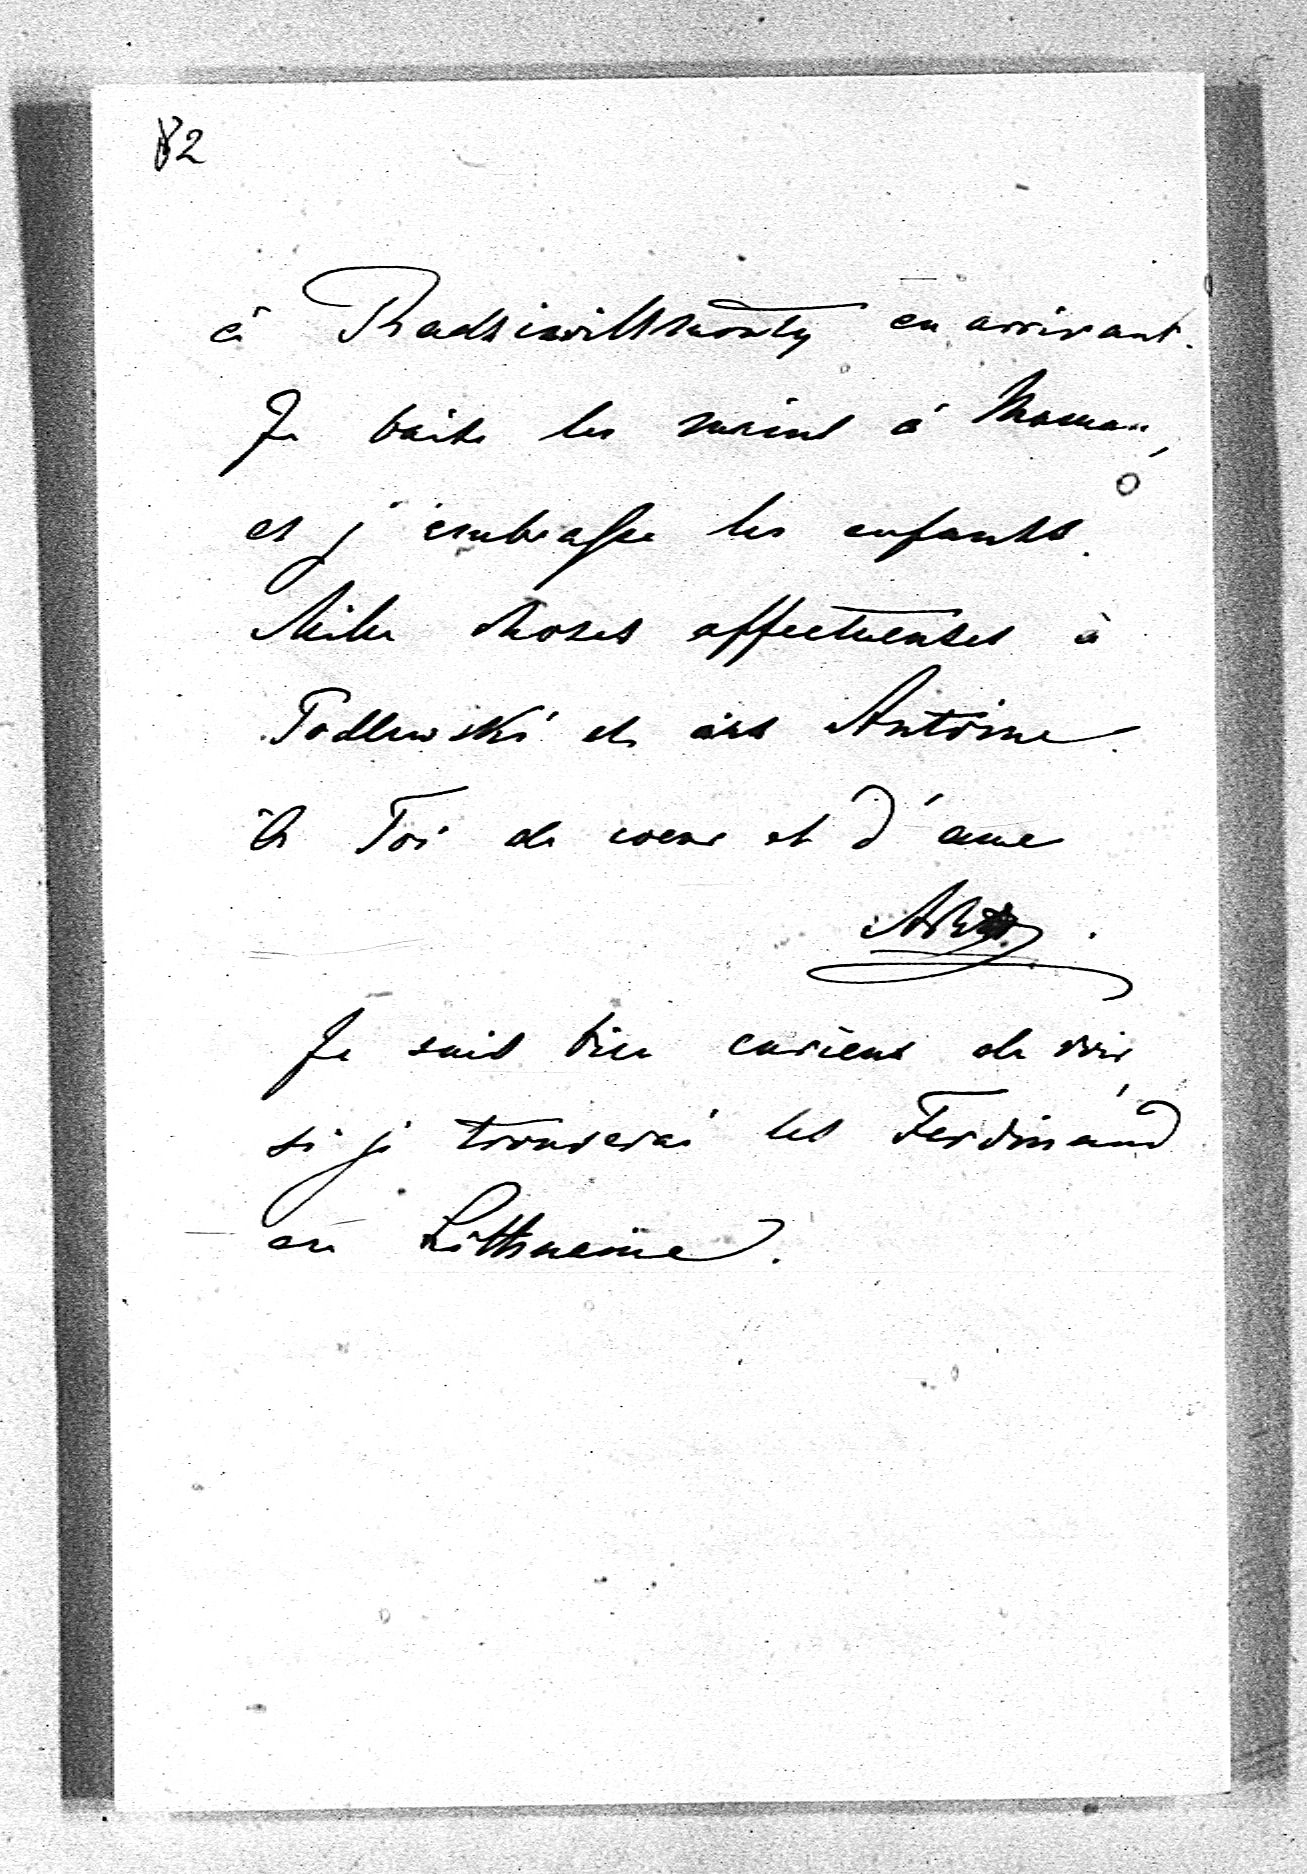 82
à Radziwillmonty en arrivant.
Je baise les mains à Maman,
et j'embrasse les enfants.
Mille choses affectueuses à
Podlewski et aux Antoine
à Toi de coeur et d'âme
Je suis bien curieux de voir
si je trouverai les Ferdinand
en Litthuanie.